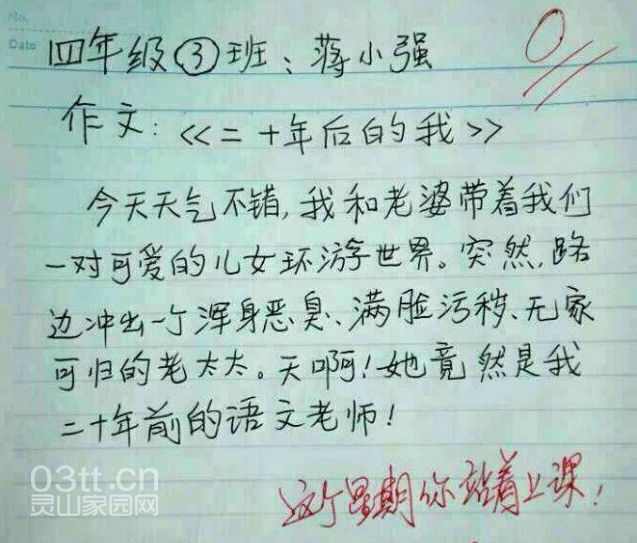 No.
Date
四年级③班：蒋小强
作文：<<二十年后的我>>
今天天气不错,我和老婆带着我们
一对可爱的儿女环游世界。突然,路
边冲出一个浑身恶臭、满脸污秽、无家
可归的老太太。天啊!她竟然是我
二十年前的语文老师!
0
这个星期你站着上课!
03tt.cn
灵山家园网